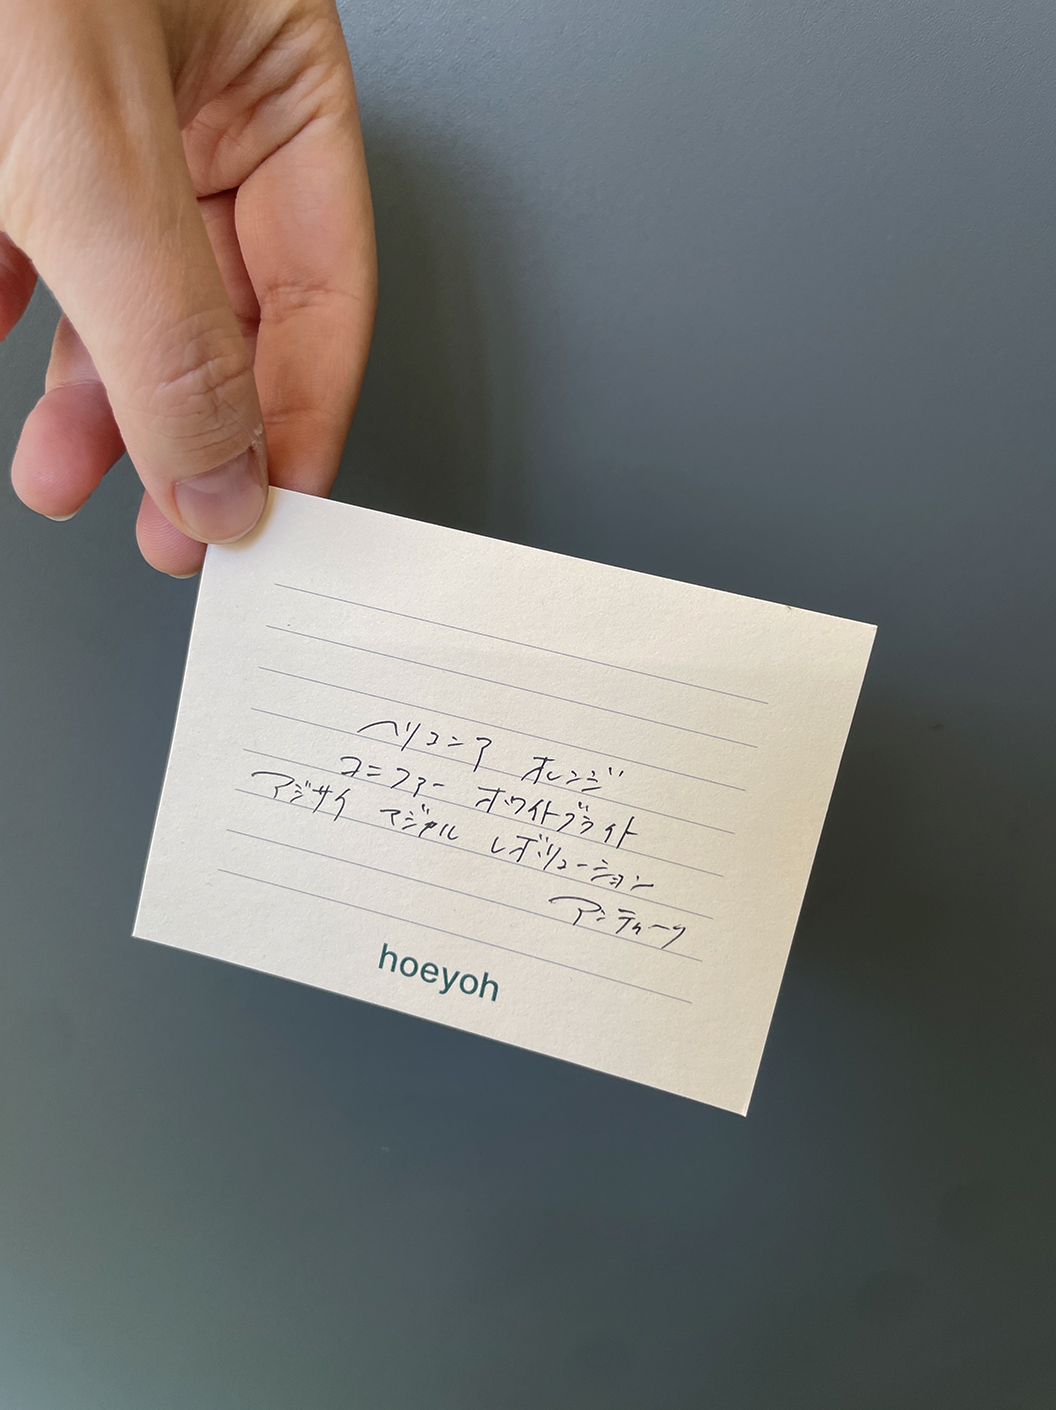 ヘリコニア オレンジ
コニファー ホワイトブライト
アジサイ マジカル レボリューション
アンティーク
hoeyoh